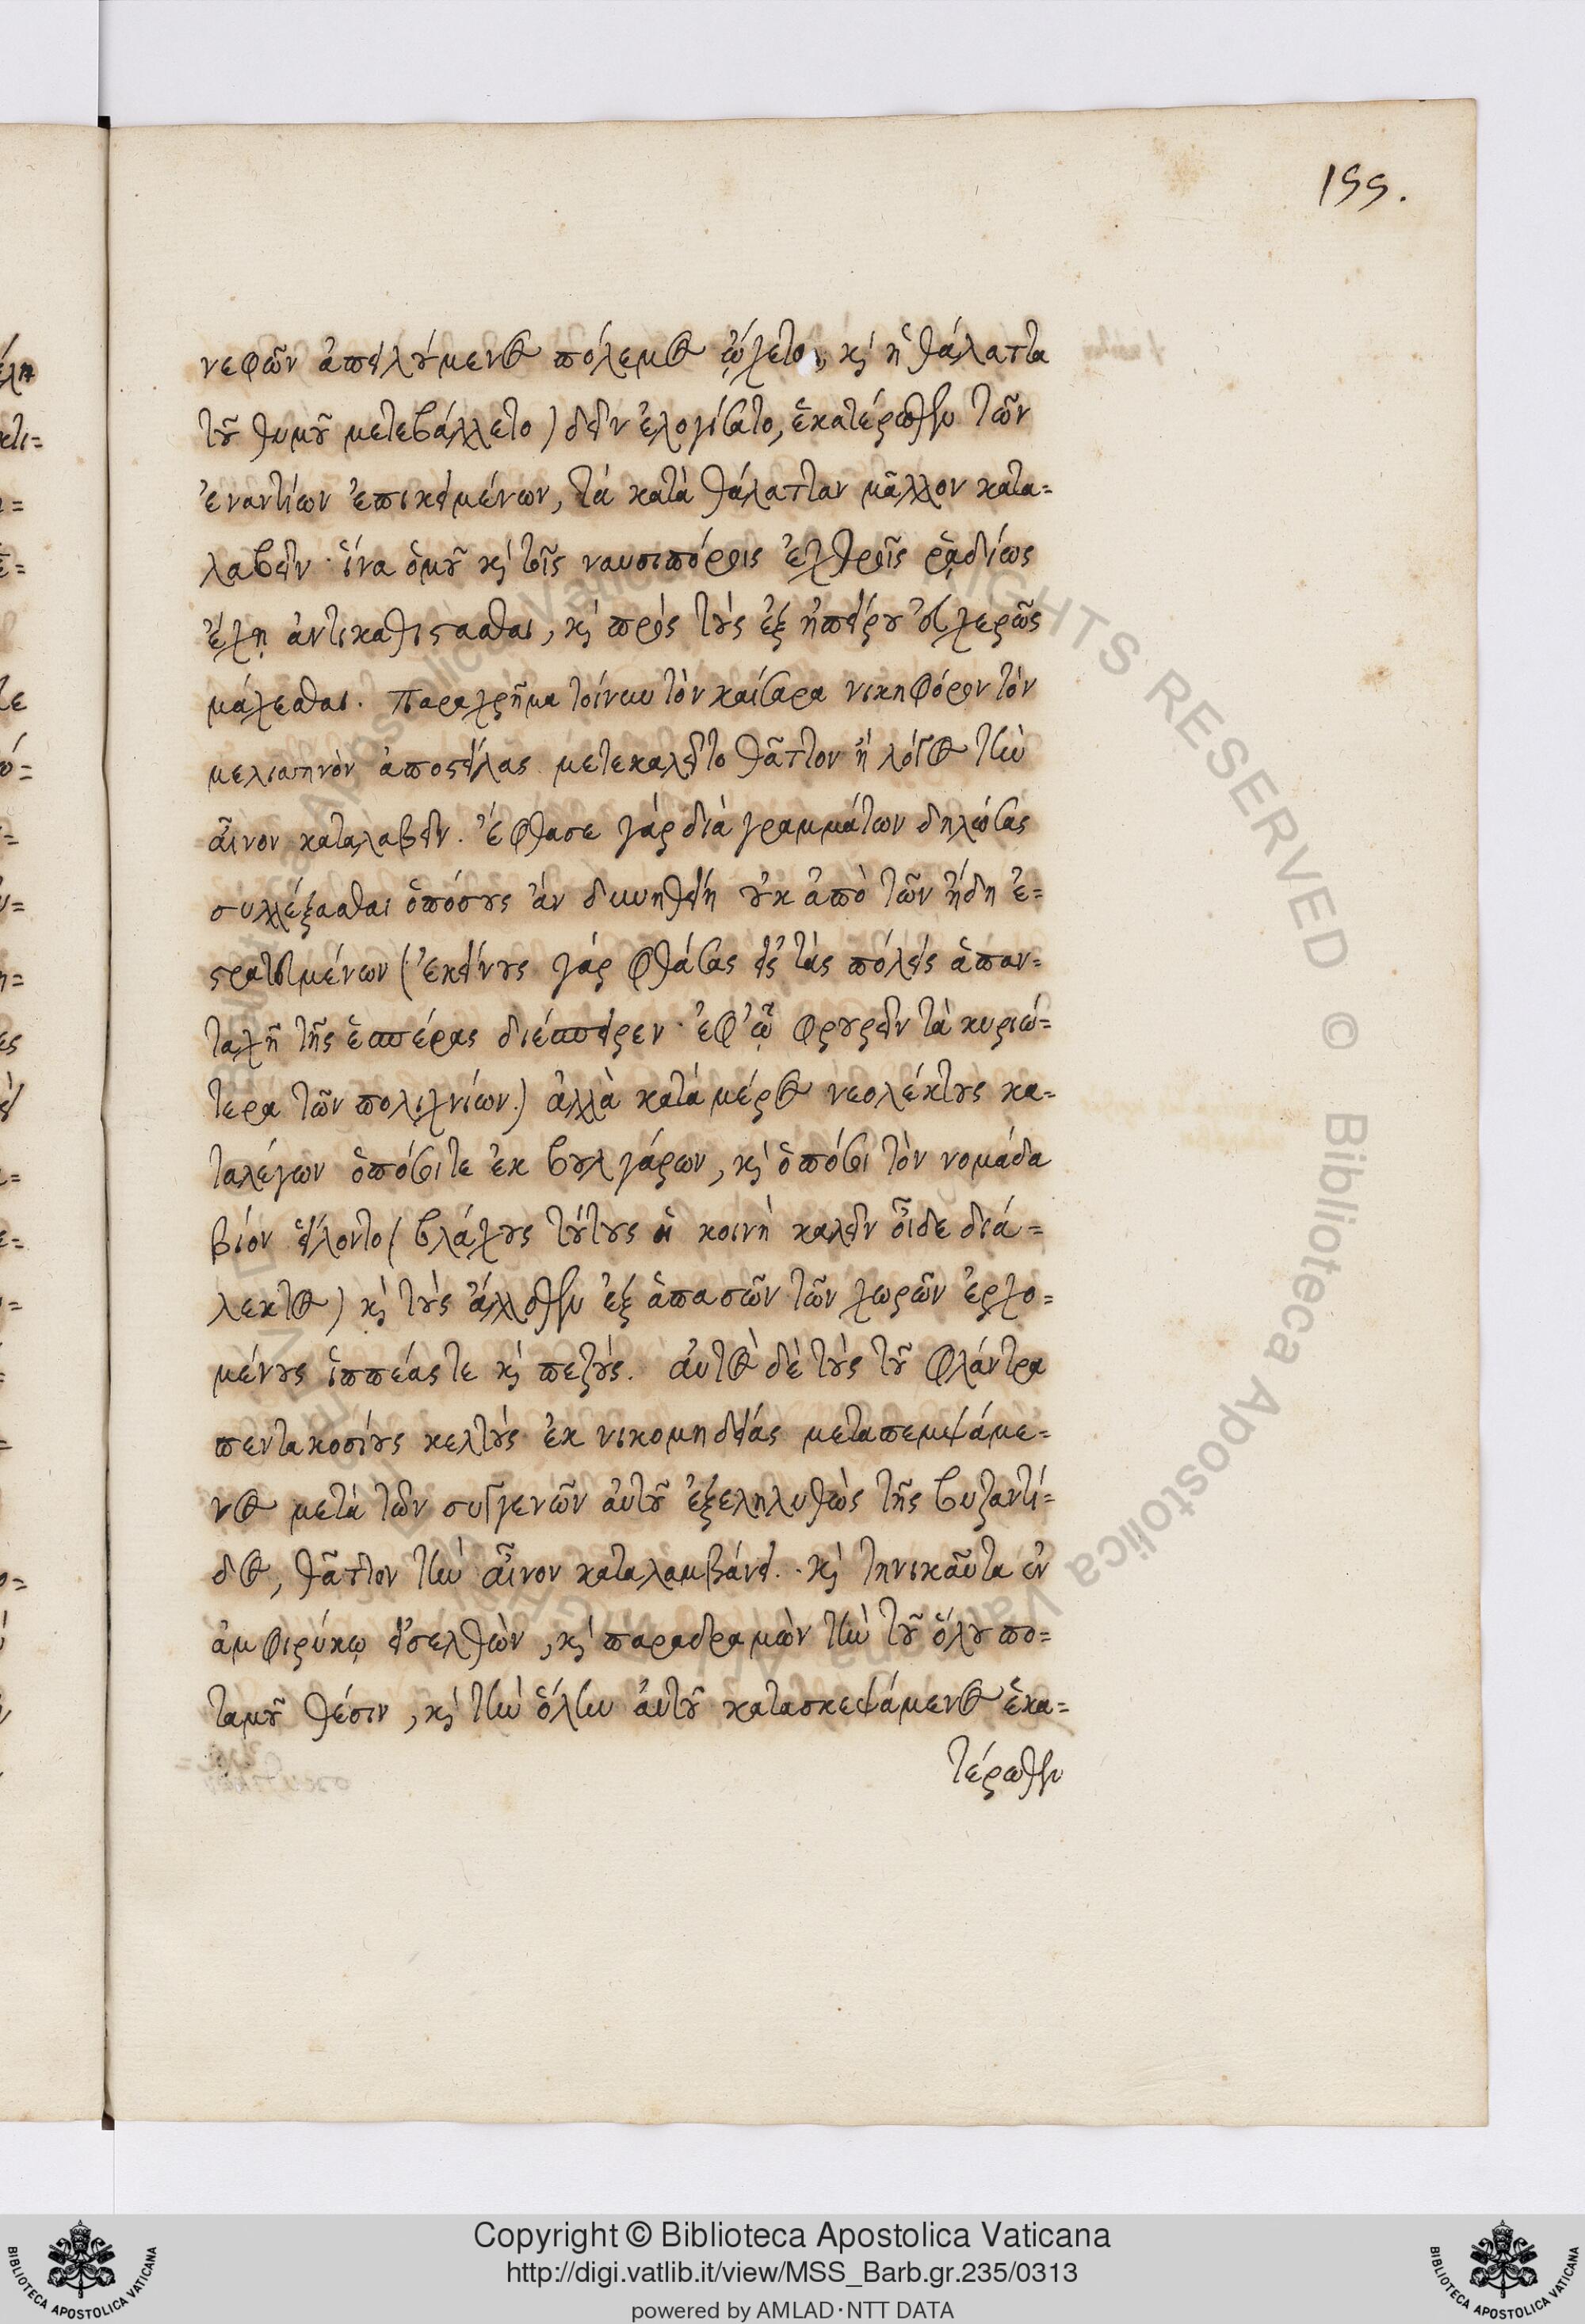 155.
νεφῶν ἀπειλούμενος πόλεμος ᾤχετο, καὶ ἡ θάλαττα
τοῦ θυμοῦ μετεβάλλετο) δεῖν ἐλογίσατο, ἑκατέρωθεν τῶν
ἐναντίων ἐπικειμένων, τὰ κατὰ θάλατταν μᾶλλον κατα=
λαβεῖν· ἵνα ὁμοῦ καὶ τοῖς ναυσιπόροις ἐχθροῖς ῥᾳδίως
ἔχῃ ἀντικαθίστασθαι, καὶ πρὸς τοὺς ἐξ ἠπείρου εὐχερῶς
μάχεσθαι. Παραχρῆμα τοίνυν τὸν καίσαρα νικηφόρον τὸν
μελισσηνὸν ἀποστείλας μετεκαλεῖτο θᾶττον ἢ λόγος τὴν
αἶνον καταλαβεῖν. ἔφθασε γάρ διὰ γραμμάτων δηλώσας
συλλέξασθαι ὁπόσους ἂν δυνηθείη οὐκ ἀπὸ τῶν ἤδη ἐ=
στρατευμένων (ἐκείνους γάρ φθάσας εἰς τὰς πόλεις ἁπαν=
ταχῆ τῆς ἑσπέρας διέσπειρεν· ἐφ' ᾧ φρουρεῖν τὰ κυριώ=
τερα τῶν πολιχνίων.) ἀλλὰ κατὰ μέρος νεολέκτους κα=
ταλέγων ὁπόσοι τε ἐκ βουλγάρων, καὶ ὁπόσοι τὸν νομάδα
βίον εἵλοντο (βλάχους τούτους ἡ κοινὴ καλεῖν οἶδε διά=
λεκτος) καὶ τοὺς ἄλλοθεν ἐξ ἁπασῶν τῶν χωρῶν ἐρχο=
μένους ἱππέας τε καὶ πεζούς. αὐτὸς δὲ τοὺς τοῦ φλάντρα
πεντακοσίους κελτοὺς ἐκ νικομηδείας μεταπεμψάμε=
νος μετὰ τῶν συγγενῶν αὐτοῦ ἐξεληλυθὼς τῆς βυζαντί=
δος, θᾶττον τὴν αἶνον καταλαμβάνει. καὶ τηνικαῦτα ἐν
ἀμφιρύκῳ εἰσελθὼν, καὶ παραδραμὼν τὴν τοῦ ὅλου πο=
ταμοῦ θέσιν, καὶ τὴν ὅλην αὐτοῦ κατασκεψάμενος ἑκα=
τέρωθεν
Copyright © Biblioteca Apostolica Vaticana
http://digi.vatlib.it/view/MSS_Barb.gr.235/0313
powered by AMLAD·NTT DATA